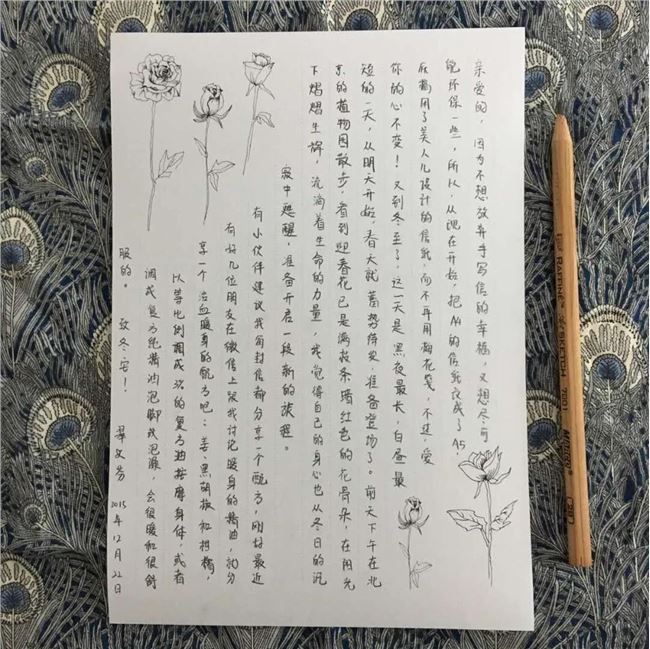 亲爱的,因为不想放弃手写信的幸福,又想尽可
能环保一些,所以,从现在开始,把A4的信纸改成了A5,
用了美人儿设计的信纸,而不再用梅花笺,不过,爱
你的心不变!又到冬至了,这一天是黑夜最长,白昼最
短的一天,从明天开始,春天就蓄势待发,准备登场了。前天下午在北
京的植物园散步,看到迎春花已是满枝条墙红色的花骨朵,在阳光
下熠熠生辉,流淌着生命的力量,我觉得自己的身心也从冬日的沉
寂中苏醒,准备开启一段新的旅程。
有小伙伴建议我每封信都分享一个配方,刚好最近
有好几位朋友在微信上跟我讨论暖身的精油,就分
享一个活血暖身的配方吧:姜、黑胡椒和柑橘,
以等比例调成的复方油按摩身体,或者
调成复方纯精油泡脚或泡澡,会很暖和很舒
服的。 致冬安! 2015年12月22日
RAFFINE SKETCH 7001 MARCO